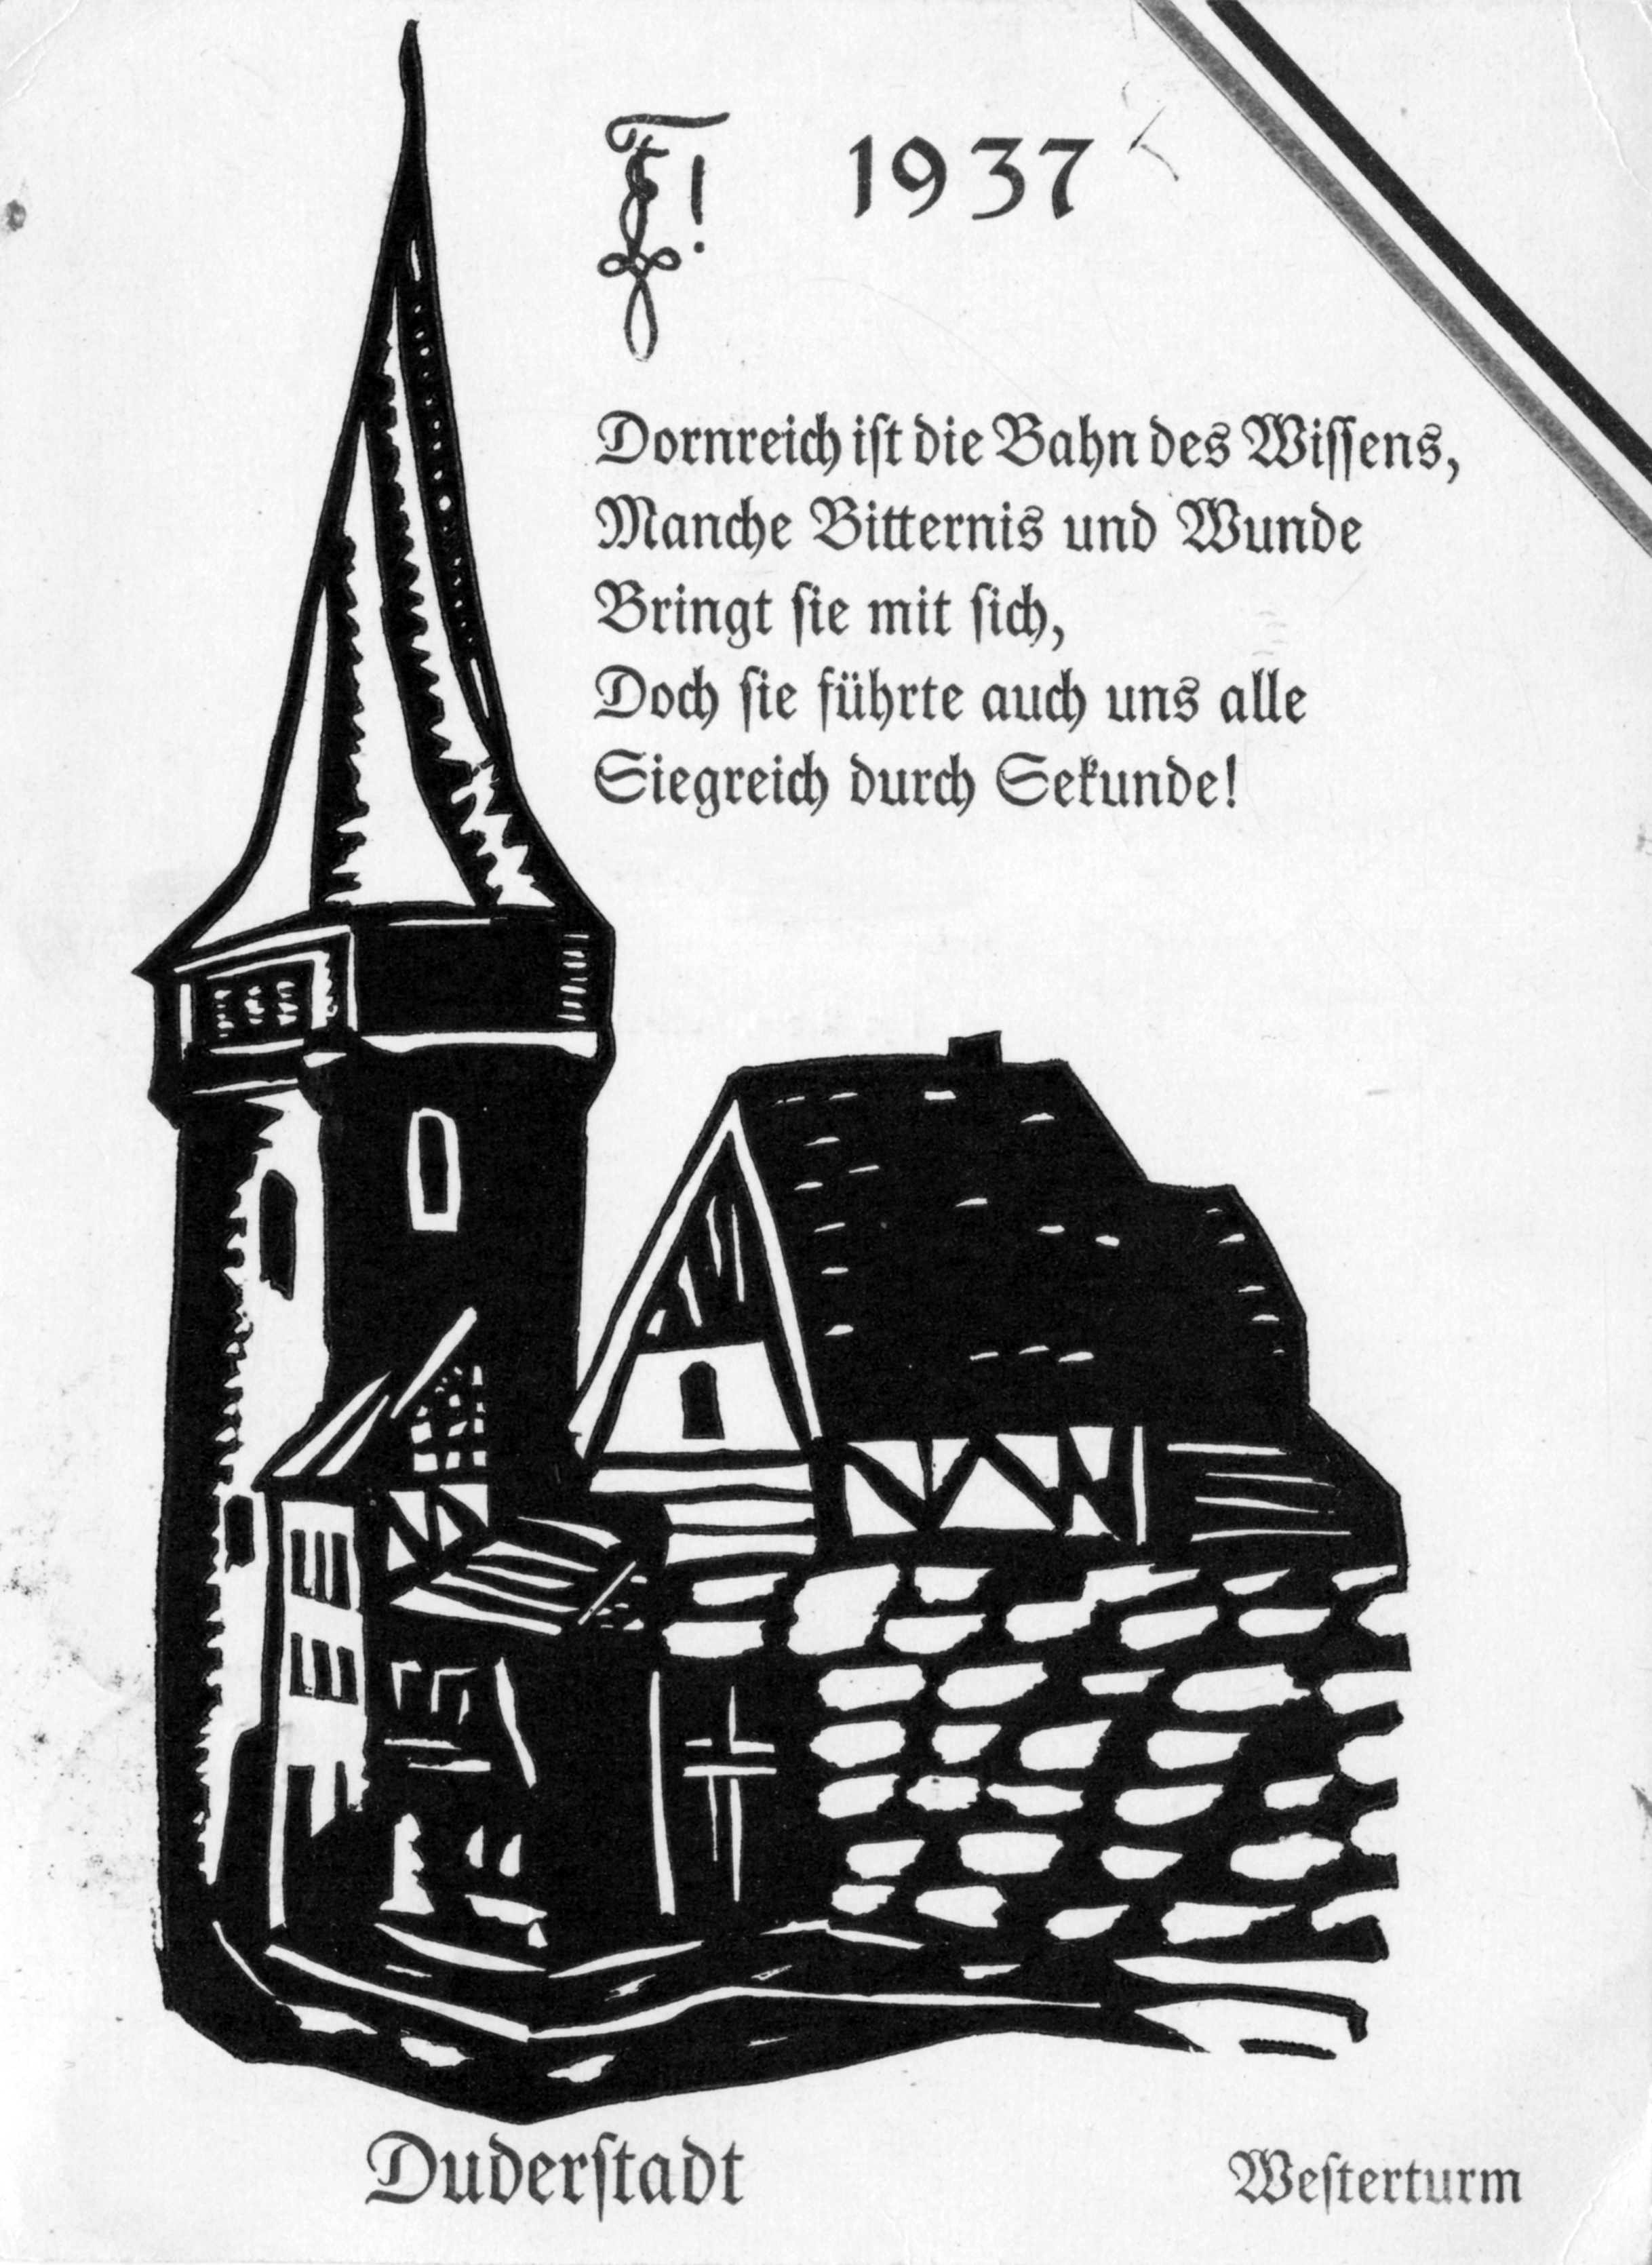 1937
Dornreich ist die Bahn des Wissens,
Manche Bitternis und Wunde
Bringt sie mit sich,
Doch sie führte auch uns alle
Siegreich durch Sekunde!
Duderstadt
Westerturm